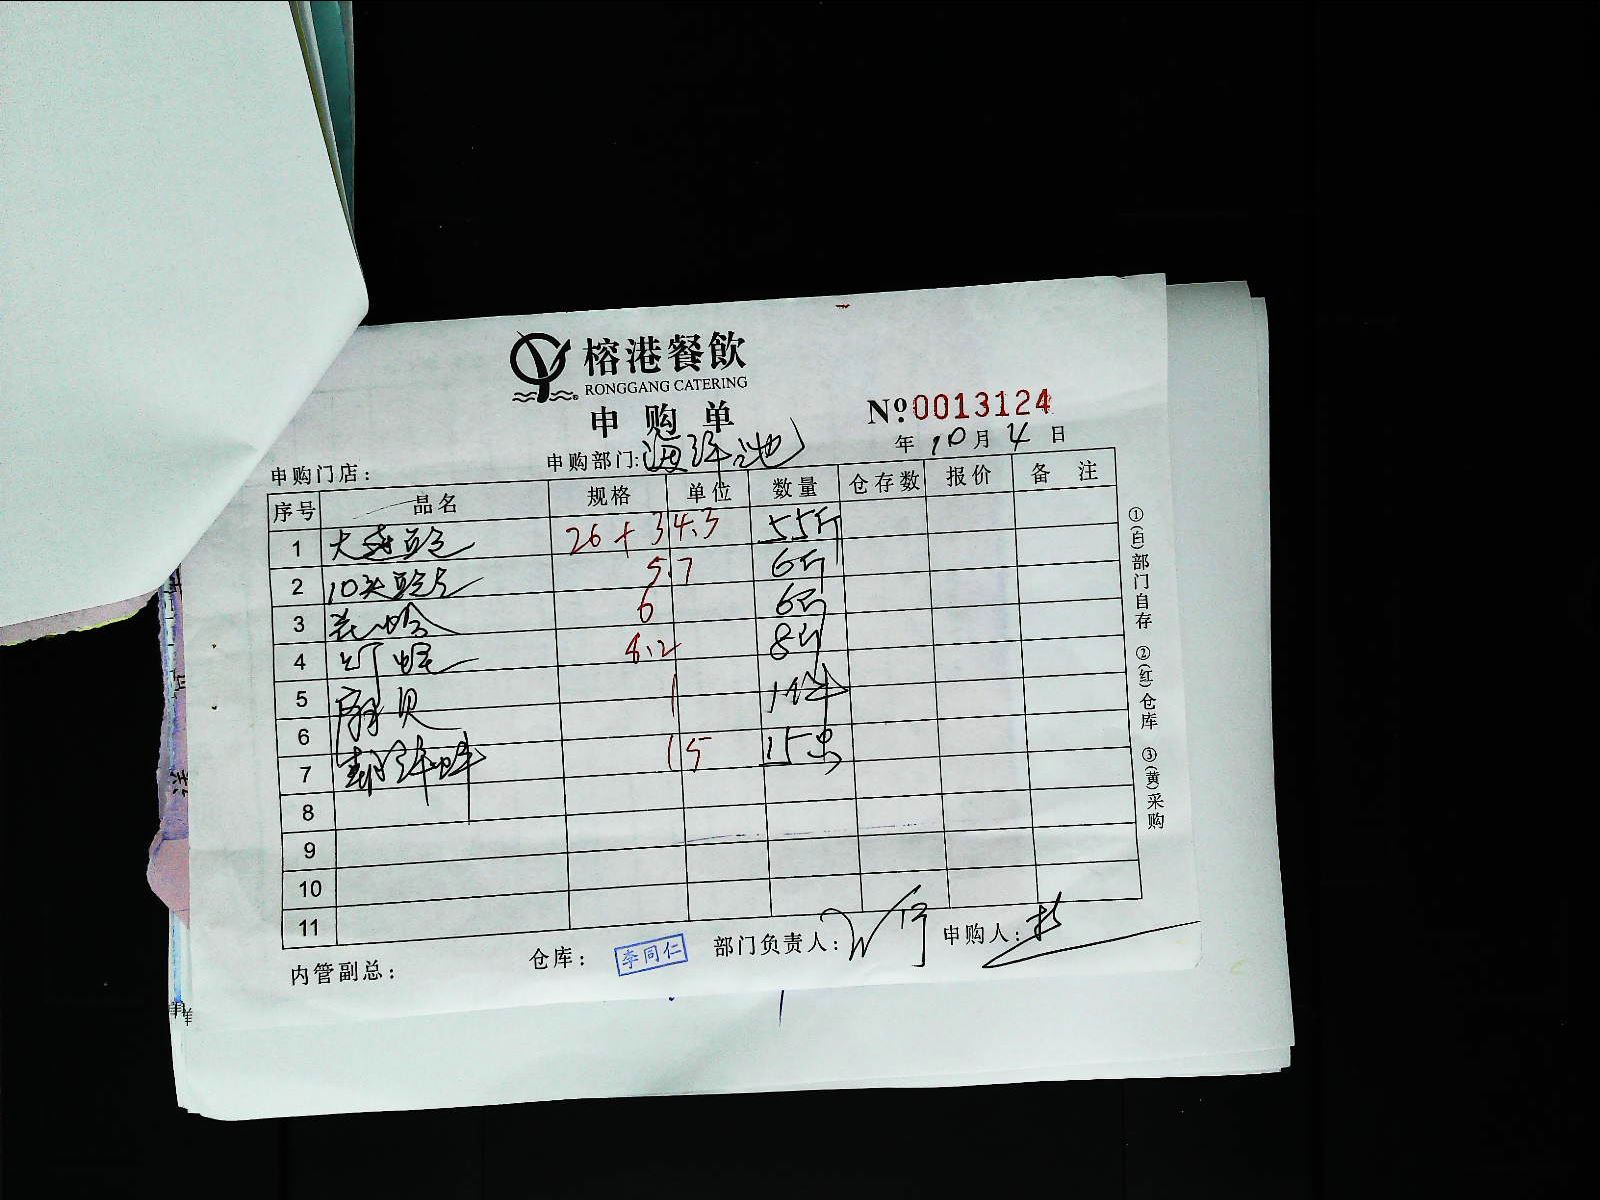 榕港餐飲
RONGGANG CATERING
申购单
№0013124
年10月4日
申购门店： 申购部门：海鲜池
序号 品名 规格 单位 数量 仓存数 报价 备注
1 大连鲍 26+34.3 55斤
2 10头鲍 5.7 6斤
3 花蛤 6 6斤
4 8.2 8斤
5 扇贝 1 1件
6
7 15 15
8
9
10
11
①(白)部门自存 ②(红)仓库 ③(黄)采购
内管副总： 仓库： 李同仁 部门负责人： 申购人：